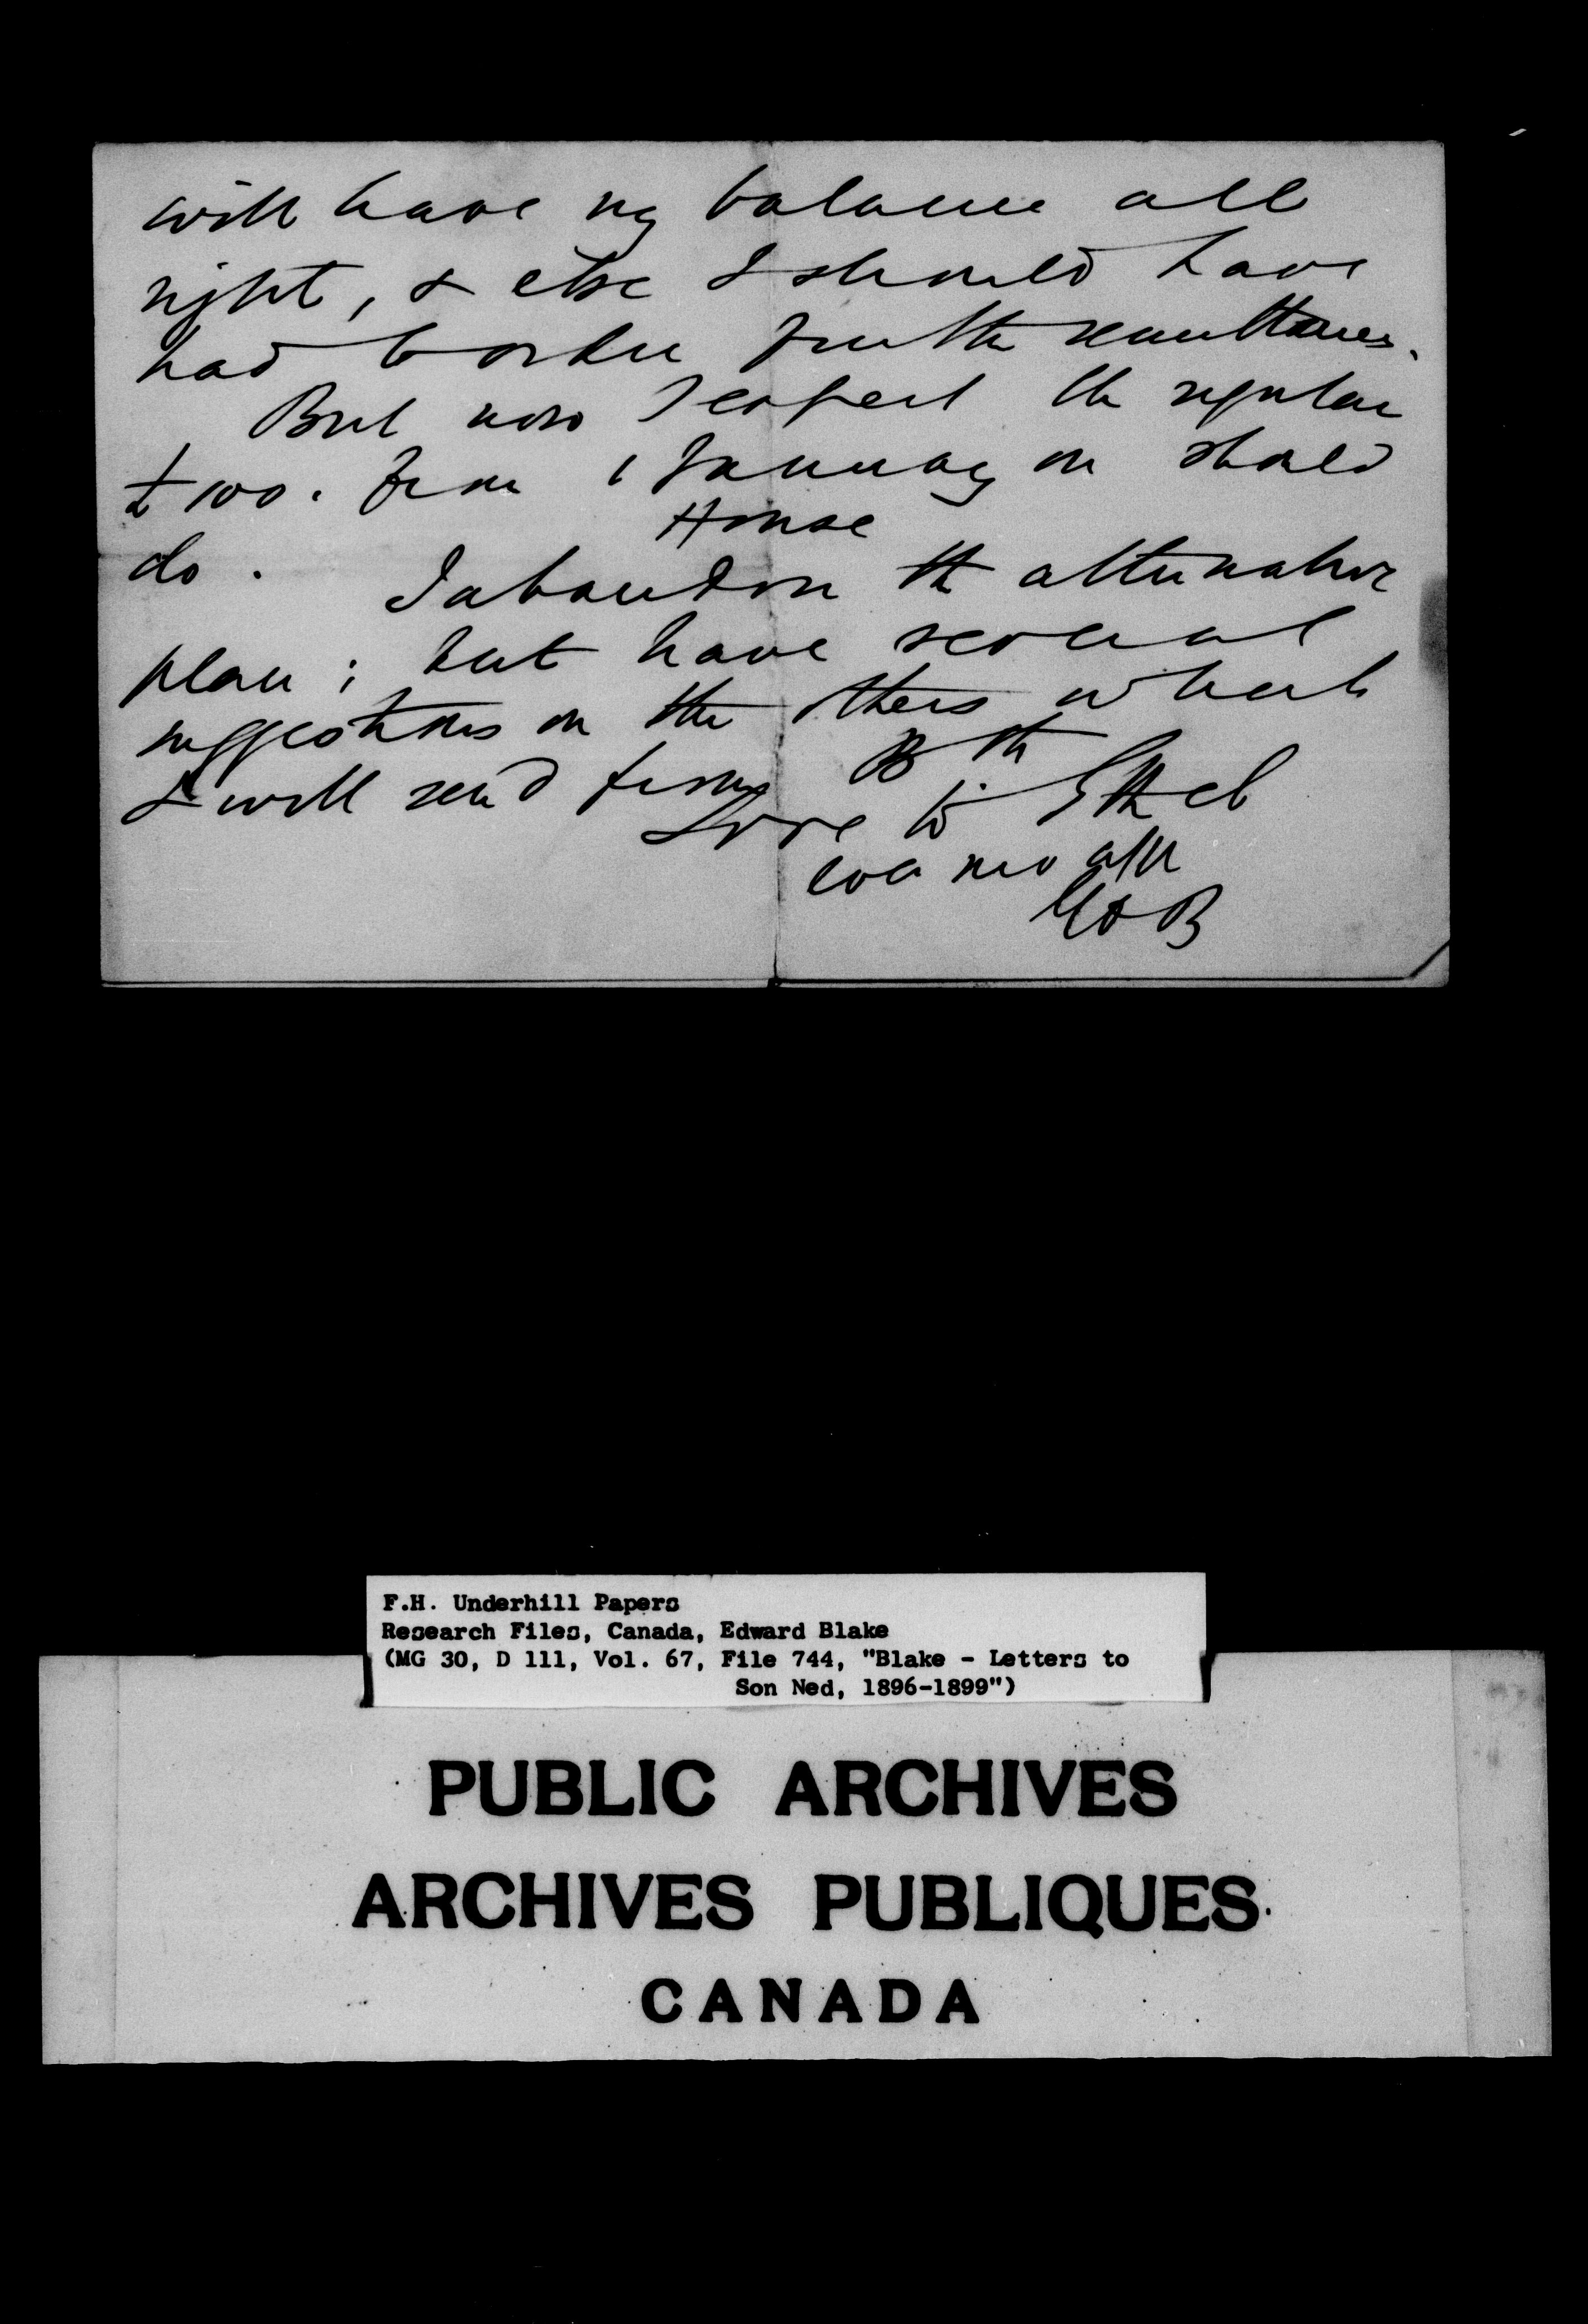 will have my balance all
right, & else I should have
had to order further remittances.
But now I expect the regular
£100. from 1 January on should
do.
House
I abandon the alternative
plan; but have several
suggestions on the others which
I will send from
Love to Ethel
Ever mo aff
EB
F.H. Underhill Papers
Research Files, Canada, Edward Blake
(MG 30, D 111, Vol. 67, File 744, "Blake - Letters to
Son Ned, 1896-1899")
PUBLIC ARCHIVES
ARCHIVES PUBLIQUES
CANADA